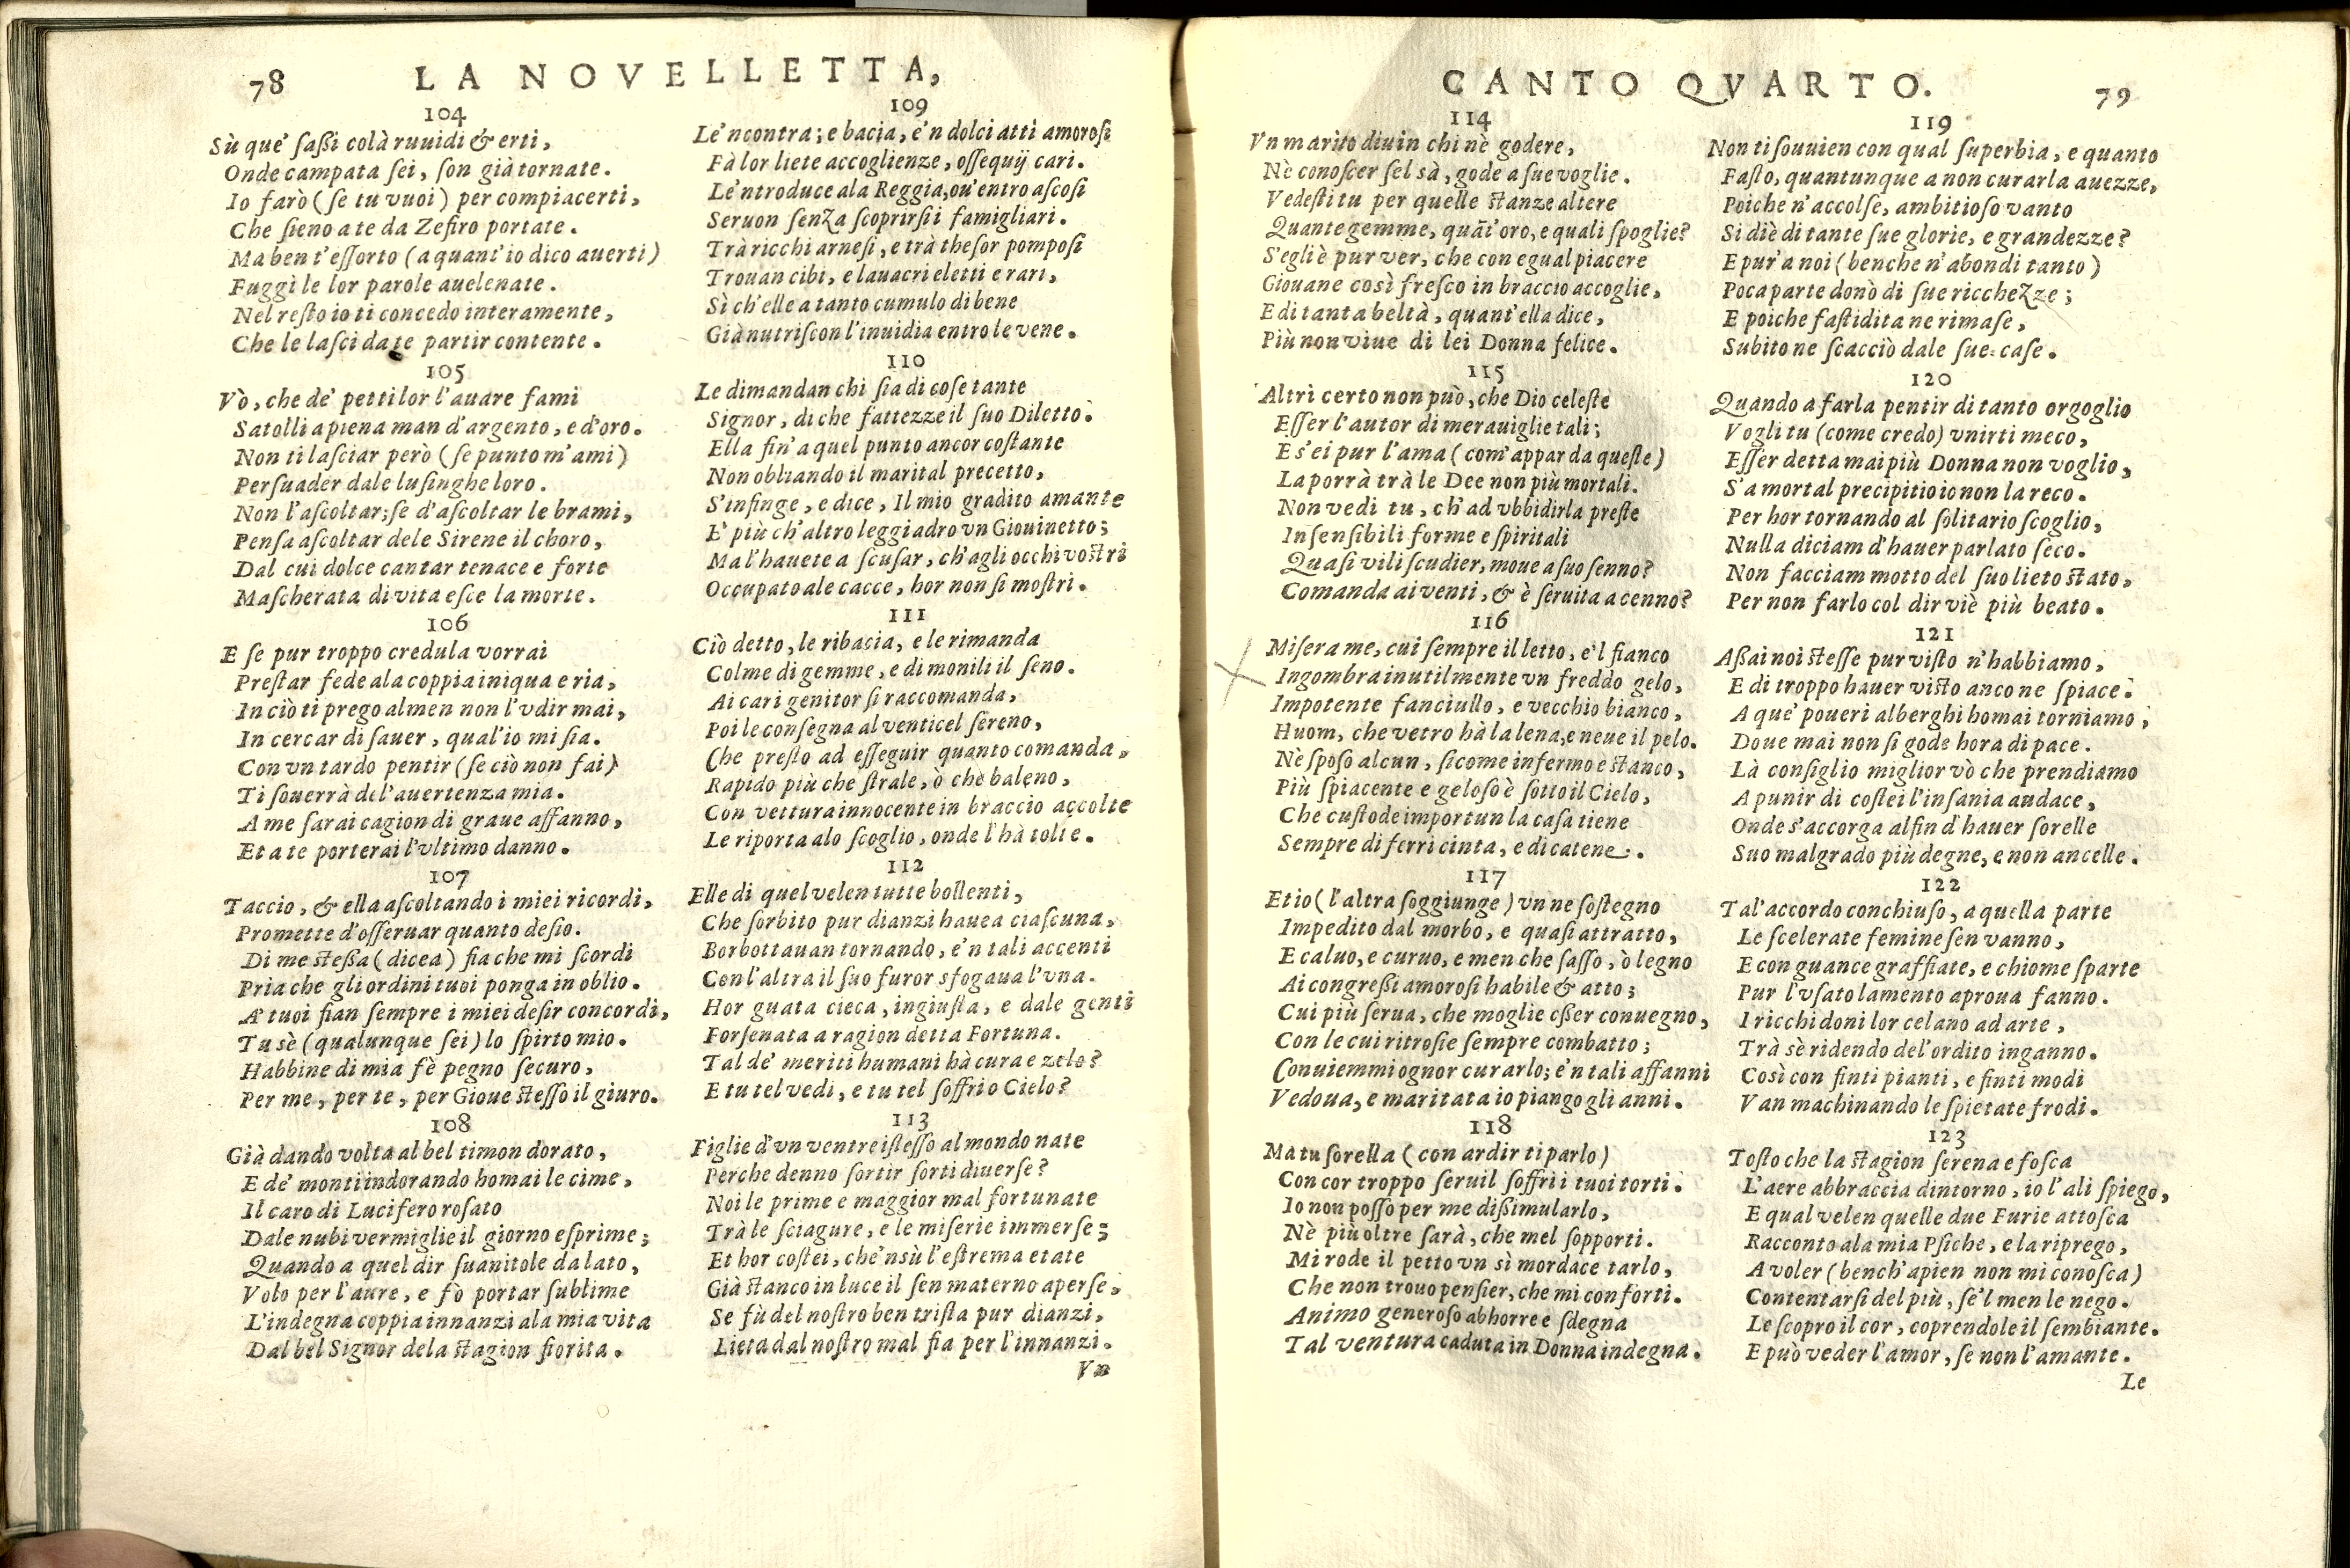 78 LA NOVELLETTA,
104
Sù que' saßi colà ruuidi & erti,
Onde campata sei, son già tornate.
Io farò (se tu vuoi) per compiacerti,
Che sieno a te da Zefiro portate.
Ma ben t'essorto (a quant'io dico auerti)
Fuggi le lor parole auelenate.
Nel resto io ti concedo interamente,
Che le lasci da te partir contente.
105
Vò, che de' petti lor l'auare fami
Satolli a piena man d'argento, e d'oro.
Non ti lasciar però (se punto m'ami)
Persuader dale lusinghe loro.
Non l'ascoltar; se d'ascoltar le brami,
Pensa ascoltar dele Sirene il choro,
Dal cui dolce cantar tenace e forte
Mascherata di vita esce la morte.
106
E se pur troppo credula vorrai
Prestar fede ala coppia iniqua e ria,
In ciò ti prego almen non l'vdir mai,
In cercar di sauer, qual'io mi sia.
Con vn tardo pentir (se ciò non fai)
Ti souerrà del'auertenza mia.
A me sarai cagion di graue affanno,
Et a te porterai l'vltimo danno.
107
Taccio, & ella ascoltando i miei ricordi,
Promette d'osseruar quanto desio.
Di me steßa (dicea) fia che mi scordi
Pria che gli ordini tuoi ponga in oblio.
A' tuoi fian sempre i miei desir concordi,
Tu sè (qualunque sei) lo spirto mio.
Habbine di mia fè pegno securo,
Per me, per te, per Gioue stesso il giuro.
108
Già dando volta al bel timon dorato,
E de' monti indorando homai le cime,
Il caro di Lucifero rosato
Dale nubi vermiglie il giorno esprime;
Quando a quel dir suanitole da lato,
Volo per l'aure, e fò portar sublime
L'indegna coppia innanzi ala mia vita
Dal bel Signor dela stagion fiorita.
109
Le'ncontra; e bacia, e'n dolci atti amorosi
Fà lor liete accoglienze, ossequij cari.
Le'ntroduce ala Reggia, ou'entro ascosi
Seruon senza scoprirsi i famigliari.
Trà ricchi arnesi, e trà thesor pomposi
Trouan cibi, e lauacri eletti e rari,
Sì ch'elle a tanto cumulo di bene
Già nutriscon l'inuidia entro le vene.
110
Le dimandan chi sia di cose tante
Signor, di che fattezze il suo Diletto.
Ella fin'a quel punto ancor costante
Non obliando il marital precetto,
S'infinge, e dice, Il mio gradito amante
E' più ch'altro leggiadro vn Giouinetto;
Ma l'hauete a scusar, ch'agli occhi vostri
Occupato ale cacce, hor non si mostri.
111
Ciò detto, le ribacia, e le rimanda
Colme di gemme, e di monili il seno.
Ai cari genitor si raccomanda,
Poi le consegna al venticel sereno,
Che presto ad esseguir quanto comanda,
Rapido più che strale, ò che baleno,
Con vettura innocente in braccio accolte
Le riporta alo scoglio, onde l'hà tolte.
112
Elle di quel velen tutte bollenti,
Che sorbito pur dianzi hauea ciascuna,
Borbottauan tornando, e'n tali accenti
Con l'altra il suo furor sfogaua l'vna.
Hor guata cieca, ingiusta, e dale genti
Forsenata a ragion detta Fortuna.
Tal de' meriti humani hà cura e zelo?
E tu tel vedi, e tu tel soffri o Cielo?
113
Figlie d'vn ventre istesso al mondo nate
Perche denno sortir sorti diuerse?
Noi le prime e maggior mal fortunate
Trà le sciagure, e le miserie immerse;
Et hor costei, che'n sù l'estrema etate
Già stanco in luce il sen materno aperse,
Se fù del nostro ben trista pur dianzi,
Lieta dal nostro mal fia per l'innanzi.
Vn
CANTO QVARTO. 79
114
Vn marito diuin chi nè godere,
Nè conoscer sel sà, gode a sue voglie.
Vedesti tu per quelle stanze altere
Quante gemme, quāt'oro, e quali spoglie?
S'egli è pur ver, che con egual piacere
Giouane così fresco in braccio accoglie,
E di tanta beltà, quant'ella dice,
Più non viue di lei Donna felice.
115
Altri certo non può, che Dio celeste
Esser l'autor di merauiglie tali;
E s'ei pur l'ama (com'appar da queste)
La porrà trà le Dee non più mortali.
Non vedi tu, ch'ad vbbidirla preste
Insensibili forme e spiritali
Quasi vili scudier, moue a suo senno?
Comanda ai venti, & è seruita a cenno?
116
Misera me, cui sempre il letto, e'l fianco
Ingombra inutilmente vn freddo gelo,
Impotente fanciullo, e vecchio bianco,
Huom, che vetro hà la lena, e neue il pelo.
Nè sposo alcun, sicome infermo e stanco,
Più spiacente e geloso è sotto il Cielo,
Che custode importun la casa tiene
Sempre di ferri cinta, e di catene.
117
Et io (l'altra soggiunge) vn ne sostegno
Impedito dal morbo, e quasi attratto,
E caluo, e curuo, e men che sasso, ò legno
Ai congreßi amorosi habile & atto;
Cui più serua, che moglie eßer conuegno,
Con le cui ritrosie sempre combatto;
Conuiemmi ognor curarlo; e'n tali affanni
Vedoua, e maritata io piango gli anni.
118
Ma tu sorella (con ardir ti parlo)
Con cor troppo seruil soffri i tuoi torti.
Io non posso per me dißimularlo,
Nè più oltre sarà, che mel sopporti.
Mi rode il petto vn sì mordace tarlo,
Che non trouo pensier, che mi conforti.
Animo generoso abhorre e sdegna
Tal ventura caduta in Donna indegna.
119
Non ti souuien con qual superbia, e quanto
Fasto, quantunque a non curarla auezze,
Poiche n'accolse, ambitioso vanto
Si diè di tante sue glorie, e grandezze?
E pur'a noi (benche n'abondi tanto)
Poca parte donò di sue ricchezze;
E poiche fastidita ne rimase,
Subito ne scacciò dale sue case.
120
Quando a farla pentir di tanto orgoglio
Vogli tu (come credo) vnirti meco,
Esser detta mai più Donna non voglio,
S'a mortal precipitio io non la reco.
Per hor tornando al solitario scoglio,
Nulla diciam d'hauer parlato seco.
Non facciam motto del suo lieto stato,
Per non farlo col dir viè più beato.
121
Aßai noi stesse pur visto n'habbiamo,
E di troppo hauer visto anco ne spiace.
A que' poueri alberghi homai torniamo,
Doue mai non si gode hora di pace.
Là consiglio miglior vò che prendiamo
A punir di costei l'insania audace,
Onde s'accorga alfin d'hauer sorelle
Suo malgrado più degne, e non ancelle.
122
Tal'accordo conchiuso, a quella parte
Le scelerate femine sen vanno,
E con guance graffiate, e chiome sparte
Pur l'vsato lamento a proua fanno.
I ricchi doni lor celano ad arte,
Trà sè ridendo del'ordito inganno.
Così con finti pianti, e finti modi
Van machinando le spietate frodi.
123
Tosto che la stagion serena e fosca
L'aere abbraccia dintorno, io l'ali spiego,
E qual velen quelle due Furie attosca
Racconto ala mia Psiche, e la riprego,
A voler (bench'apien non mi conosca)
Contentarsi del più, se'l men le nego.
Le scopro il cor, coprendole il sembiante.
E può veder l'amor, se non l'amante.
Le